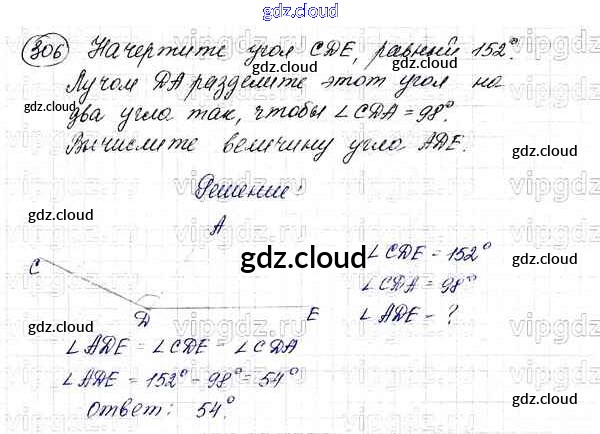 gdz.cloud
306 Начертите угол CDE, равный 152°.
Лучом DA разделите этот угол на
два угла так, чтобы ∠CDA = 98°.
Вычислите величину угла ADE.
Решение:
A
C
D
E
∠CDE = 152°
∠CDA = 98°
∠ADE - ?
∠ADE = ∠CDE = ∠CDA
∠ADE = 152° - 98° = 54°
Ответ: 54°.
gdz.cloud
gdz.cloud
gdz.cloud
gdz.cloud
gdz.cloud
gdz.cloud
gdz.cloud
gdz.cloud
gdz.cloud
vipgdz.ru
vipgdz.ru
vipgdz.ru